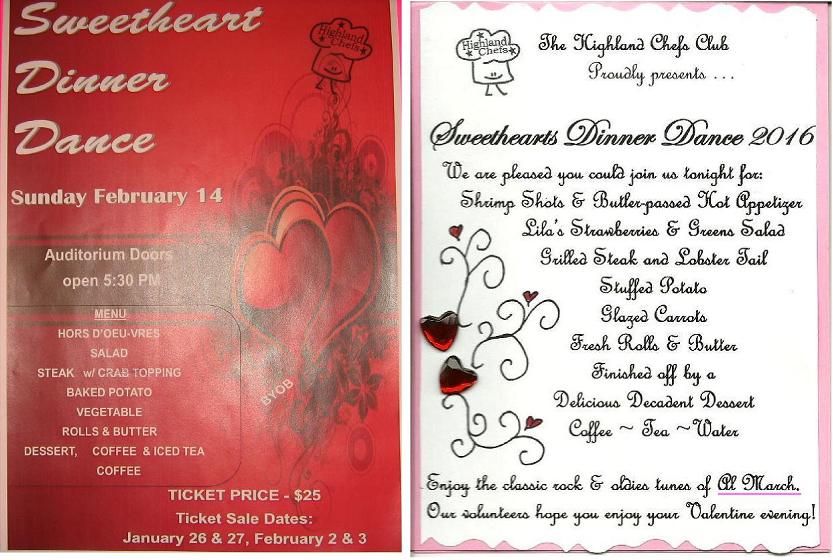 Sweetheart
Dinner
Dance
Highland
Chefs
Sunday February 14
Auditorium Doors
open 5:30 PM
MENU
HORS D'OEU-VRES
SALAD
STEAK w/ CRAB TOPPING
BAKED POTATO
VEGETABLE
ROLLS & BUTTER
DESSERT, COFFEE & ICED TEA
COFFEE
BYOB
TICKET PRICE - $25
Ticket Sale Dates:
January 26 & 27, February 2 & 3
Highland
Chefs
The Highland Chefs Club
Proudly presents ...
Sweethearts Dinner Dance 2016
We are pleased you could join us tonight for:
Shrimp Shots & Butler-passed Hot Appetizer
Lila's Strawberries & Greens Salad
Grilled Steak and Lobster Tail
Stuffed Potato
Glazed Carrots
Fresh Rolls & Butter
Finished off by a
Delicious Decadent Dessert
Coffee ~ Tea ~Water
Enjoy the classic rock & oldies tunes of Al March.
Our volunteers hope you enjoy your Valentine evening!